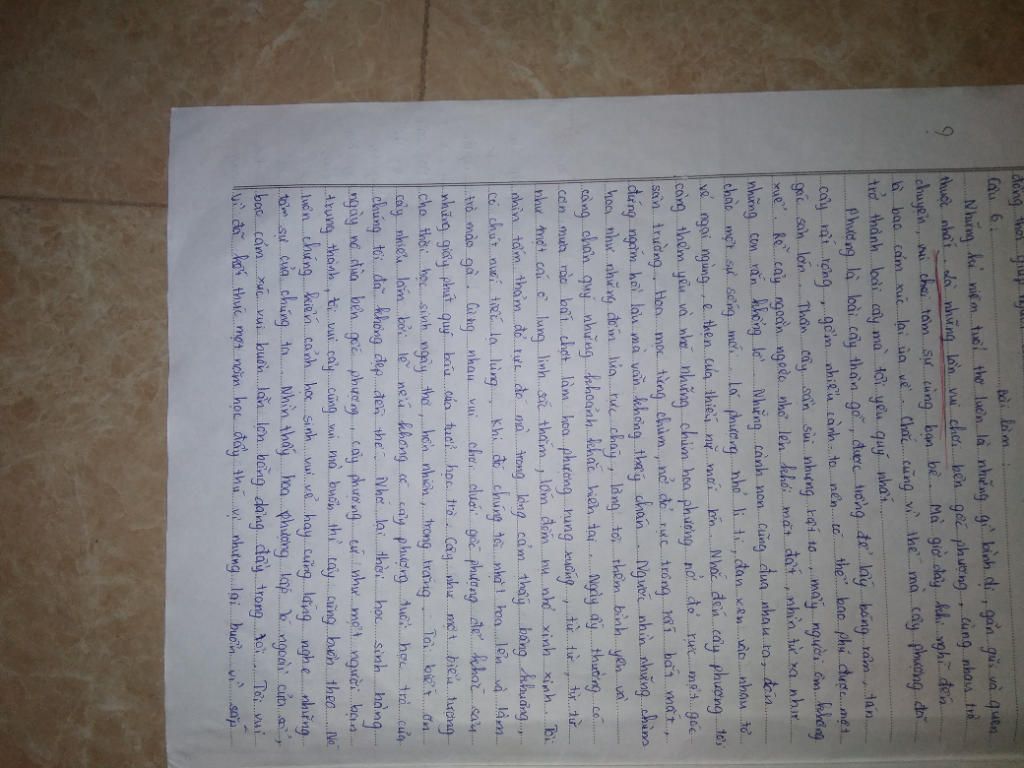 9
đồng thời giúp ngư
Câu 6: bài làm:
Những kỉ niệm tuổi thơ luôn là những gì bình dị gần gũi và quen
thuộc nhất. Là những lần vui chơi bên gốc phượng, cùng nhau trò
chuyện, vui chơi, tâm sự cùng bạn bè. Mà giờ đây khi nghĩ đến
thì bao cảm xúc lại ùa về. Chắc cũng vì thế mà cây phượng đã
trở thành loài cây mà tôi yêu quý nhất.
Phượng là loài cây thân gỗ, được trồng để lấy bóng râm, tán
cây rất rộng, gồm nhiều cành to nên có thể bao phủ được một
góc sân lớn. Thân cây sần sùi nhưng rất to, mấy người ôm không
xuể. Rễ cây ngoằn ngoèo nhô lên khỏi mặt đất, nhìn từ xa như
những con rắn khổng lồ. Những cành non cũng đua nhau ra, đón
chào một sự sống mới. Lá phượng nhỏ li ti, đan xen vào nhau tô
vẻ ngại ngùng, e thẹn của thiếu nữ mới lớn. Nhắc đến cây phượng tôi
càng thêm yêu và nhớ những chùm hoa phượng nở đỏ rực một góc
sân trường. Hoa mọc từng chùm, nở đỏ rực trông rất bắt mắt,
đứng ngắm hồi lâu mà vẫn không thấy chán. Ngước nhìn những chùm
hoa như những đốm lửa rực cháy, lòng tôi thêm bình yên và
càng trân quý những khoảnh khắc hiện tại. Ngày ấy thường có
cơn mưa rào bất chợt làm hoa phượng rung xuống, từ từ, từ từ
như trời có ê lung linh sắc thắm, lấm tấm nụ nhỏ xinh xinh. Tôi
nhìn tấm thảm đỏ rực đó mà trong lòng cảm thấy bâng khuâng,
có chút nuối tiếc lạ lùng. Khi đó chúng tôi nhặt hoa lên và làm
trò mào gà. Cùng nhau vui chơi dưới gốc phượng để khắc sâu
những giây phút quý báu của tuổi học trò. Cây như một biểu tượng
cho thời học sinh ngây thơ, hồn nhiên, trong trắng. Tôi biết ơn
cây nhiều lắm bởi lẽ nếu không có cây phượng, tuổi học trò của
chúng tôi đã không đẹp đến thế. Nhớ lại thời học sinh hằng
ngày nô đùa bên gốc phượng, cây phượng cứ như một người bạn
trung thành, tôi vui cây cũng vui mà buồn thì cây cũng buồn theo. Nó
luôn chứng kiến cảnh học sinh vui vẻ hay cũng lắng nghe những
tâm sự của chúng ta. Nhìn thấy hoa phượng lấp ló ngoài cửa sổ,
bao cảm xúc vui buồn lẫn lộn bỗng dâng đầy trong tôi. Tôi vui
vì đã kết thúc một năm học đầy thú vị nhưng lại buồn vì sắp